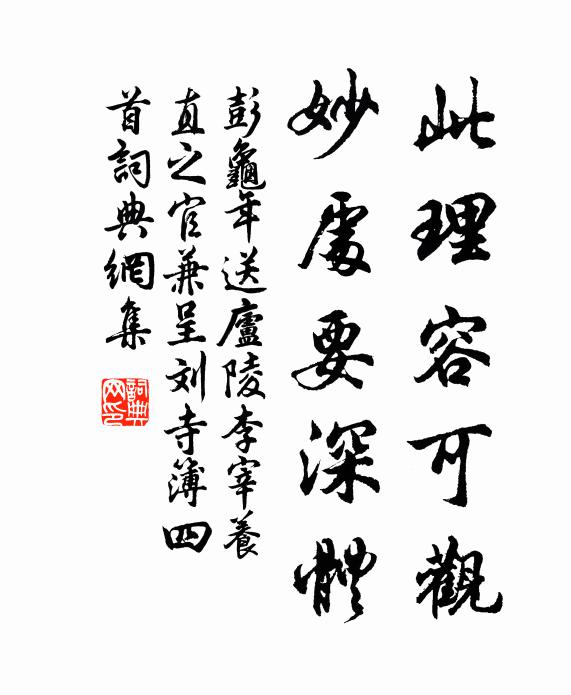 此理容可觀
妙處要深體
彭龜年送廬陵李宰養
直之官兼呈刘寺簿四
首詞典網集
詞典网印